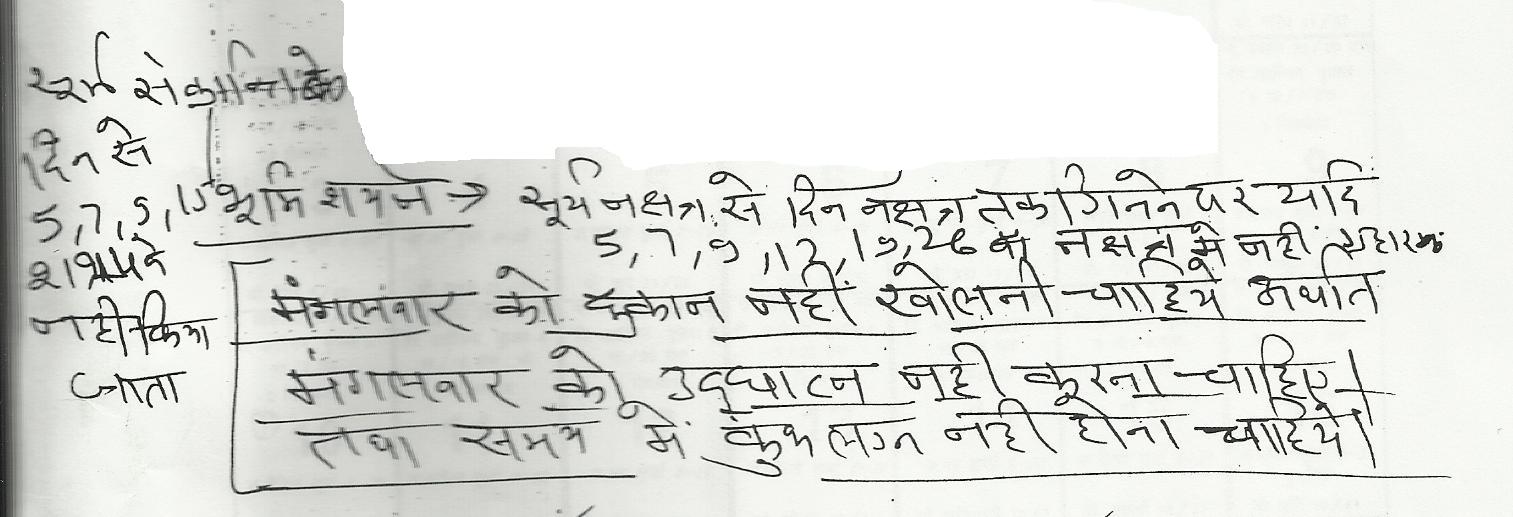 सूर्य संक्रान्ति के
दिन से
5, 7, 9, 15
नहीं किया
जाता
भूमि शयन → सूर्य नक्षत्र से दिन नक्षत्र तक गिनने पर यदि
5, 7, 9, 12, 19, 26 वा नक्षत्र में नहीं
मंगलवार को दुकान नहीं खोलनी चाहिये अर्थात
मंगलवार को उद्घाटन नही करना चाहिए।
तथा समय में कुंभ लग्न नही होना चाहिये।